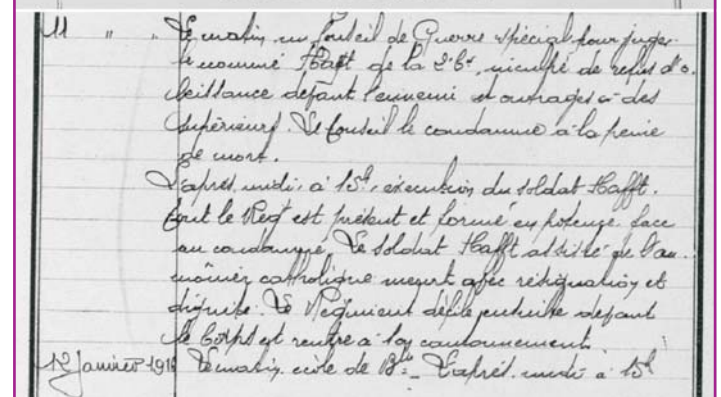 11 " " Le matin un Conseil de Guerre spécial pour juger
le nommé Hafft de la 2e Cie, inculpé de refus d'o.
béissance devant l'ennemi et outrages à des
supérieurs. Le Conseil le condamne à la peine
de mort.
L'après midi, à 15h, exécution du soldat Hafft.
tout le Régt est présent et formé en potence face
au condamné. Le soldat Hafft assisté de l'au.
mônier catholique meurt avec résignation et
dignité. Le Régiment défile ensuite devant
le Corps et rentre à son cantonnement.
12 Janvier 1916 Le matin, école de Bon _ L'après. midi à 15h